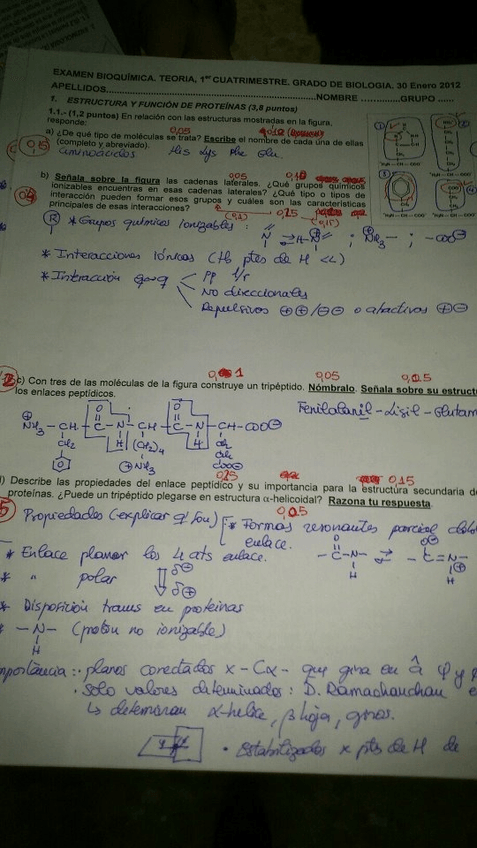 EXAMEN BIOQUÍMICA. TEORIA, 1er CUATRIMESTRE. GRADO DE BIOLOGIA. 30 Enero 2012
APELLIDOS..........NOMBRE ..............GRUPO .....
1. ESTRUCTURA Y FUNCIÓN DE PROTEÍNAS (3,8 puntos)
1.1.- (1,2 puntos) En relación con las estructuras mostradas en la figura,
responde:
0,05
a) ¿De qué tipo de moléculas se trata? Escribe el nombre de cada una de ellas
(completo y abreviado).
0,15
aminoácidos His Lys Phe Glu.
0,05 0,10
b) Señala sobre la figura las cadenas laterales. ¿Qué grupos químicos
ionizables encuentras en esas cadenas laterales? ¿Qué tipo o tipos de
interacción pueden formar esos grupos y cuáles son las características
principales de esas interacciones?
(0,1) 0,25 (0,15)
R * Grupos químicos ionizables : N ⇄ H-N ⊕ ; ⊕NH3 - ; -COO⊖
* Interacciones Iónicas (Hb ptes de H <<)
* Interacción q+q-
No direccionales
Repulsivos ⊕⊕/⊖⊖ o atractivos ⊕⊖
0,05 0,15
c) Con tres de las moléculas de la figura construye un tripéptido. Nómbralo. Señala sobre su estruct
los enlaces peptídicos.
Fenilalanil - Lisil - Glutam
⊕NH3 - CH - C - N - CH - C - N - CH - COO⊖
O H O H
CH2 (CH2)4 CH2
⊕NH3 CH2
COO⊖
0,15
d) Describe las propiedades del enlace peptídico y su importancia para la estructura secundaria de
proteínas. ¿Puede un tripéptido plegarse en estructura α-helicoidal? Razona tu respuesta.
0,05
Propiedades (explicar q' son) * Formas resonantes parcial doble
enlace.
* Enlace planar los 4 ats enlace.
* " polar δ⊖ δ⊕
O -C-N- H ⇄ O⊖ -C=N- ⊕ H
* Disposición trans en proteínas
* -N- (protón no ionizable)
H
mportancia : · planos conectados x - Cα - que gira en â φ y ψ
· Solo valores determinados : D. Ramachandran
↳ determinan α-helice, β hoja, giros.
· Estabilizados x ptes de H de